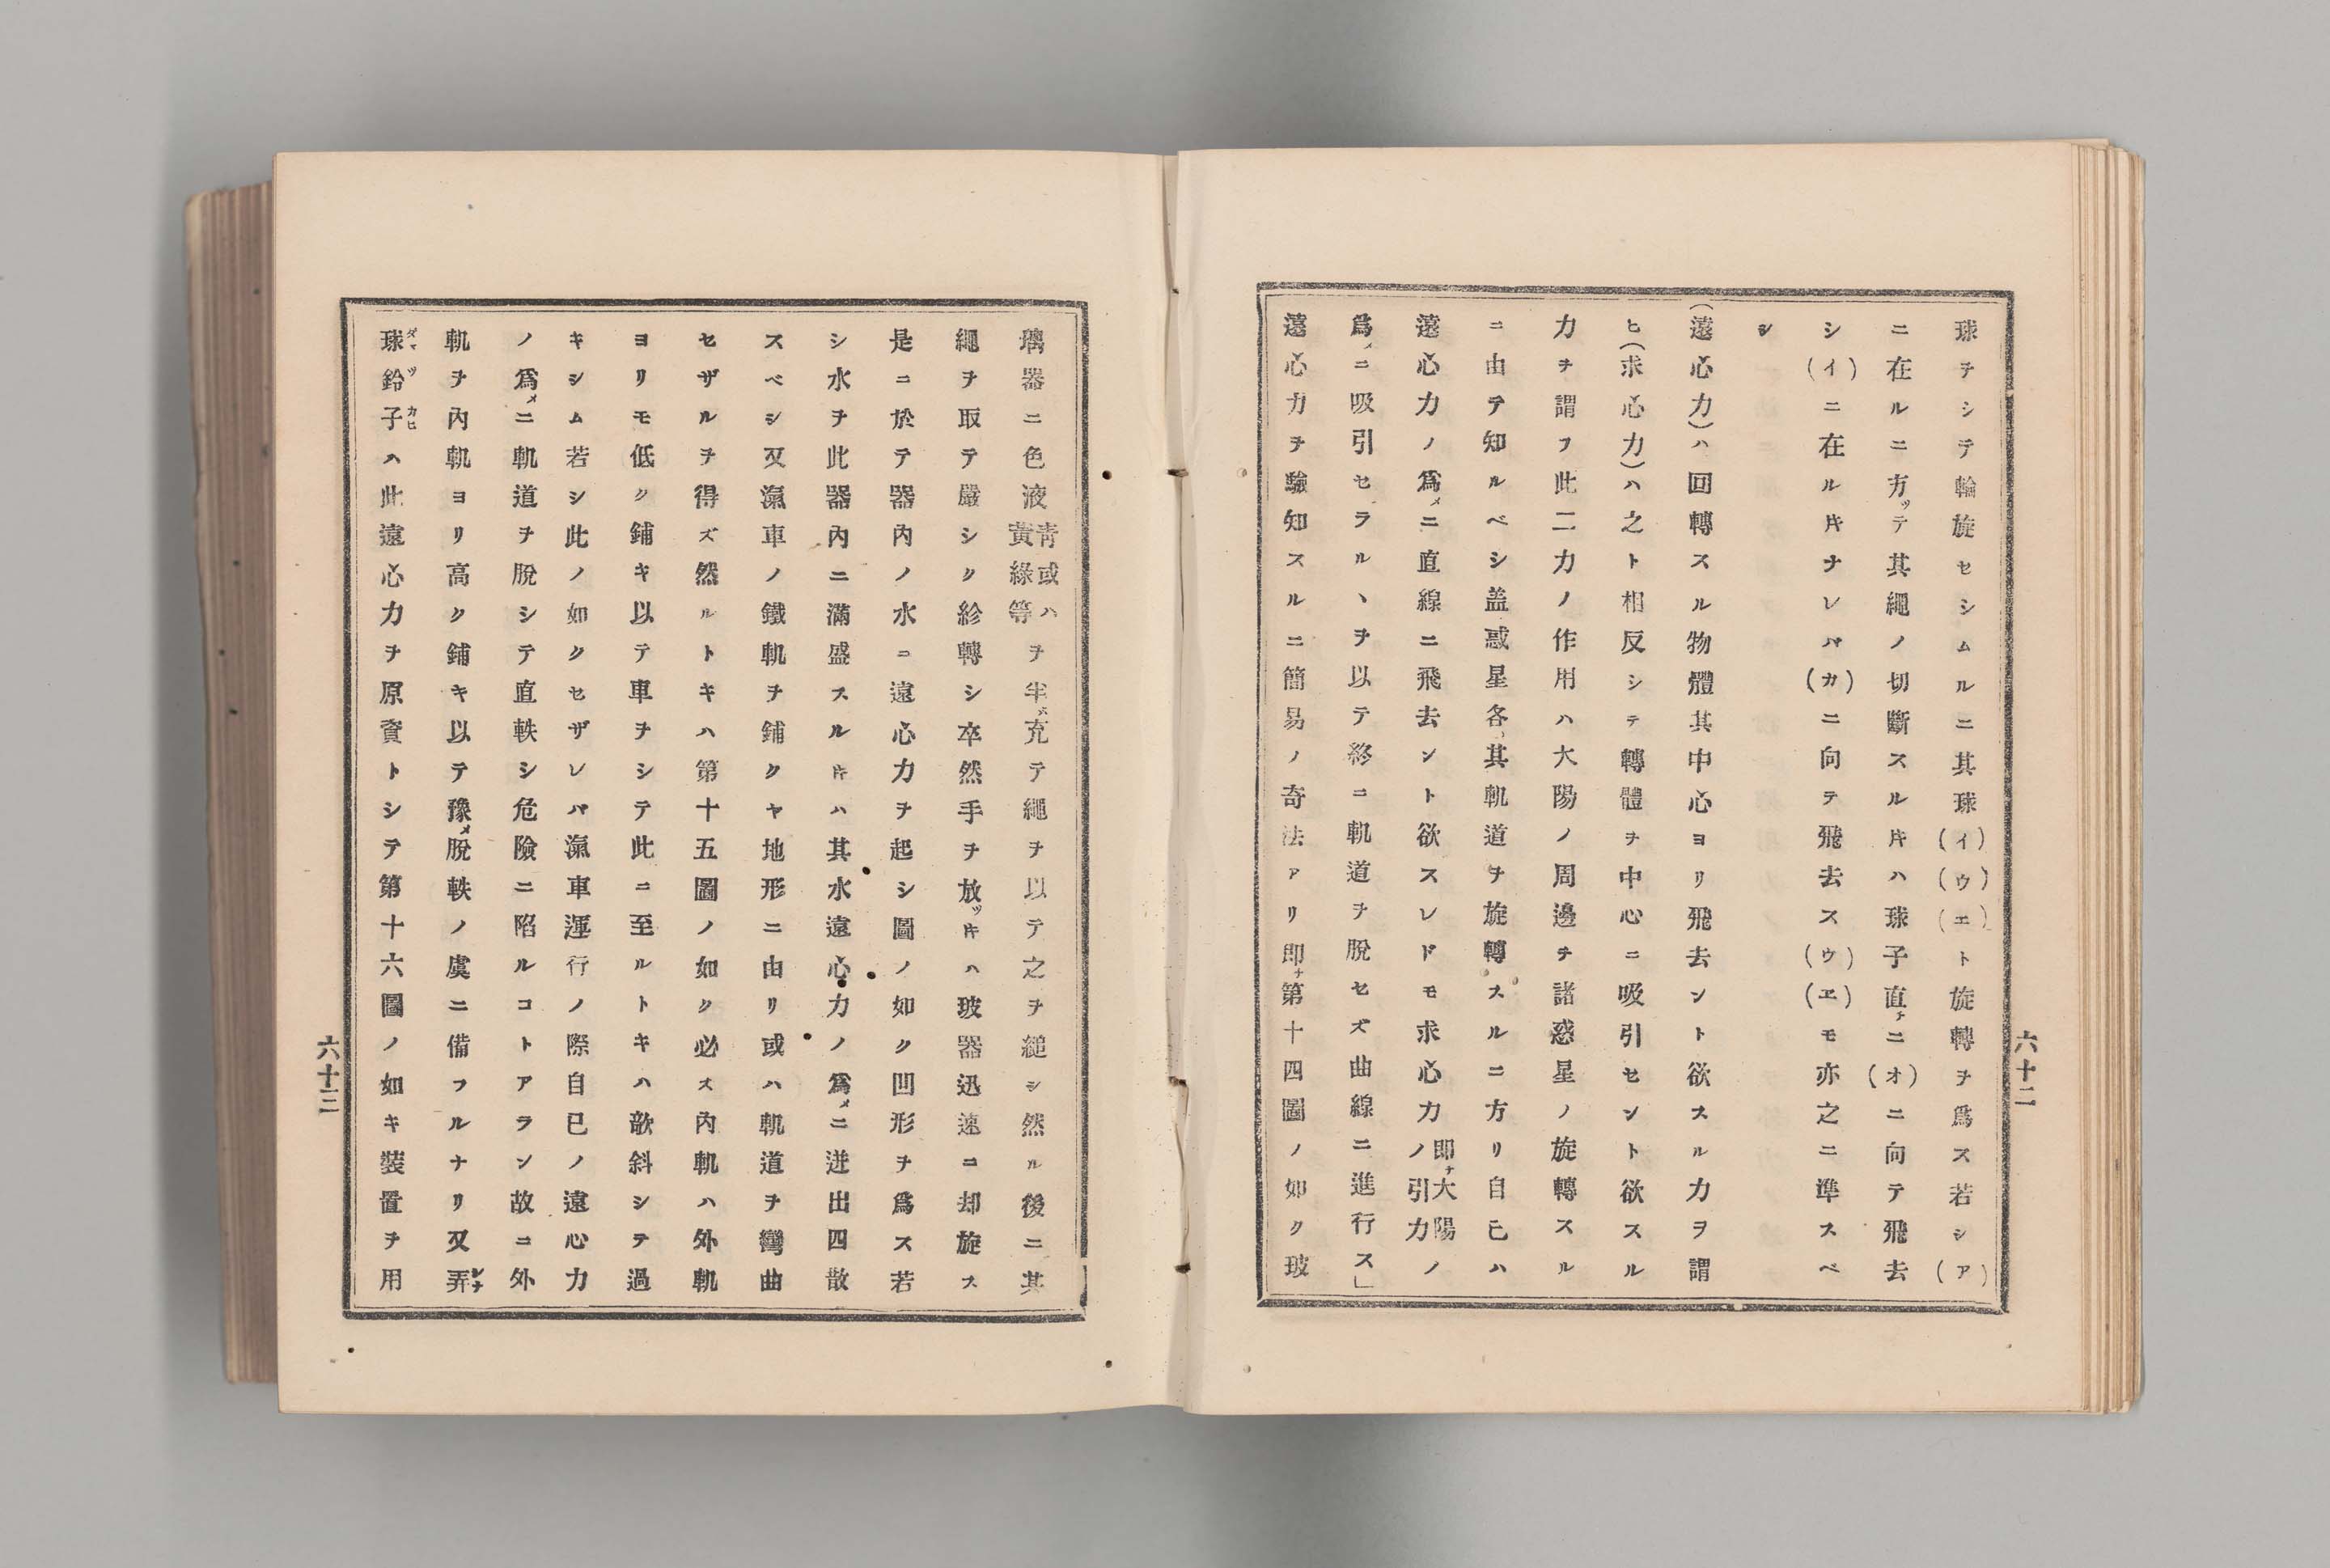 球ヲシテ輪旋セシムルニ其球(イ)(ウ)(エ)ト旋轉ヲ爲ス若シ(ア)
ニ在ルニ方ッテ其繩ノ切斷スルㇳキハ球子直チニ(オ)ニ向テ飛去
シ(イ)ニ在ルㇳキナレバ(カ)ニ向テ飛去ス(ウ)(ヱ)モ亦之ニ準スベ
シ
(遠心力)ハ回轉スル物體其中心ヨリ飛去ント欲スル力ヲ謂
ヒ(求心力)ハ之ト相反シテ轉體ヲ中心ニ吸引セント欲スル
力ヲ謂フ此二力ノ作用ハ大陽ノ周邊ヲ諸惑星ノ旋轉スル
ニ由テ知ルベシ盖惑星各〻其軌道ヲ旋轉スルニ方リ自己ハ
遠心力ノ爲メニ直線ニ飛去ント欲スレドモ求心力即チ大陽ノ引力ノ
爲メニ吸引セラルヽヲ以テ終ニ軌道ヲ脫セズ曲線ニ進行ス」
遠心力ヲ驗知スルニ簡易ノ奇法アリ即チ第十四圖ノ如ク玻
六十二
璃器ニ色液靑或ハ黃綠等ヲ半バ充テ繩ヲ以テ之ヲ縋シ然ル後ニ其
繩ヲ取テ嚴シク紾轉シ卒然手ヲ放ツㇳキハ玻器迅速ニ却旋ス
是ニ於テ器內ノ水ニ遠心力ヲ起シ圖ノ如ク凹形ヲ爲ス若
シ水ヲ此器內ニ滿盛スルㇳキハ其水遠心力ノ爲メニ迸出四散
スベシ又滊車ノ鐵軌ヲ鋪クヤ地形ニ由リ或ハ軌道ヲ彎曲
セザルヲ得ズ然ルトキハ第十五圖ノ如ク必ス內軌ハ外軌
ヨリモ低ク鋪キ以テ車ヲシテ此ニ至ルトキハ欹斜シテ過
キシム若シ此ノ如クセザレバ滊車運行ノ際自已ノ遠心力
ノ爲メニ軌道ヲ脫シテ直軼シ危險ニ陷ルコトアラン故ニ外
軌ヲ內軌ヨリ高ク鋪キ以テ豫メ脫軼ノ虞ニ備フルナリ又弄シナ
球ダマ鈴ツ子カヒハ此遠心力ヲ原資トシテ第十六圖ノ如キ裝置ヲ用
六十三